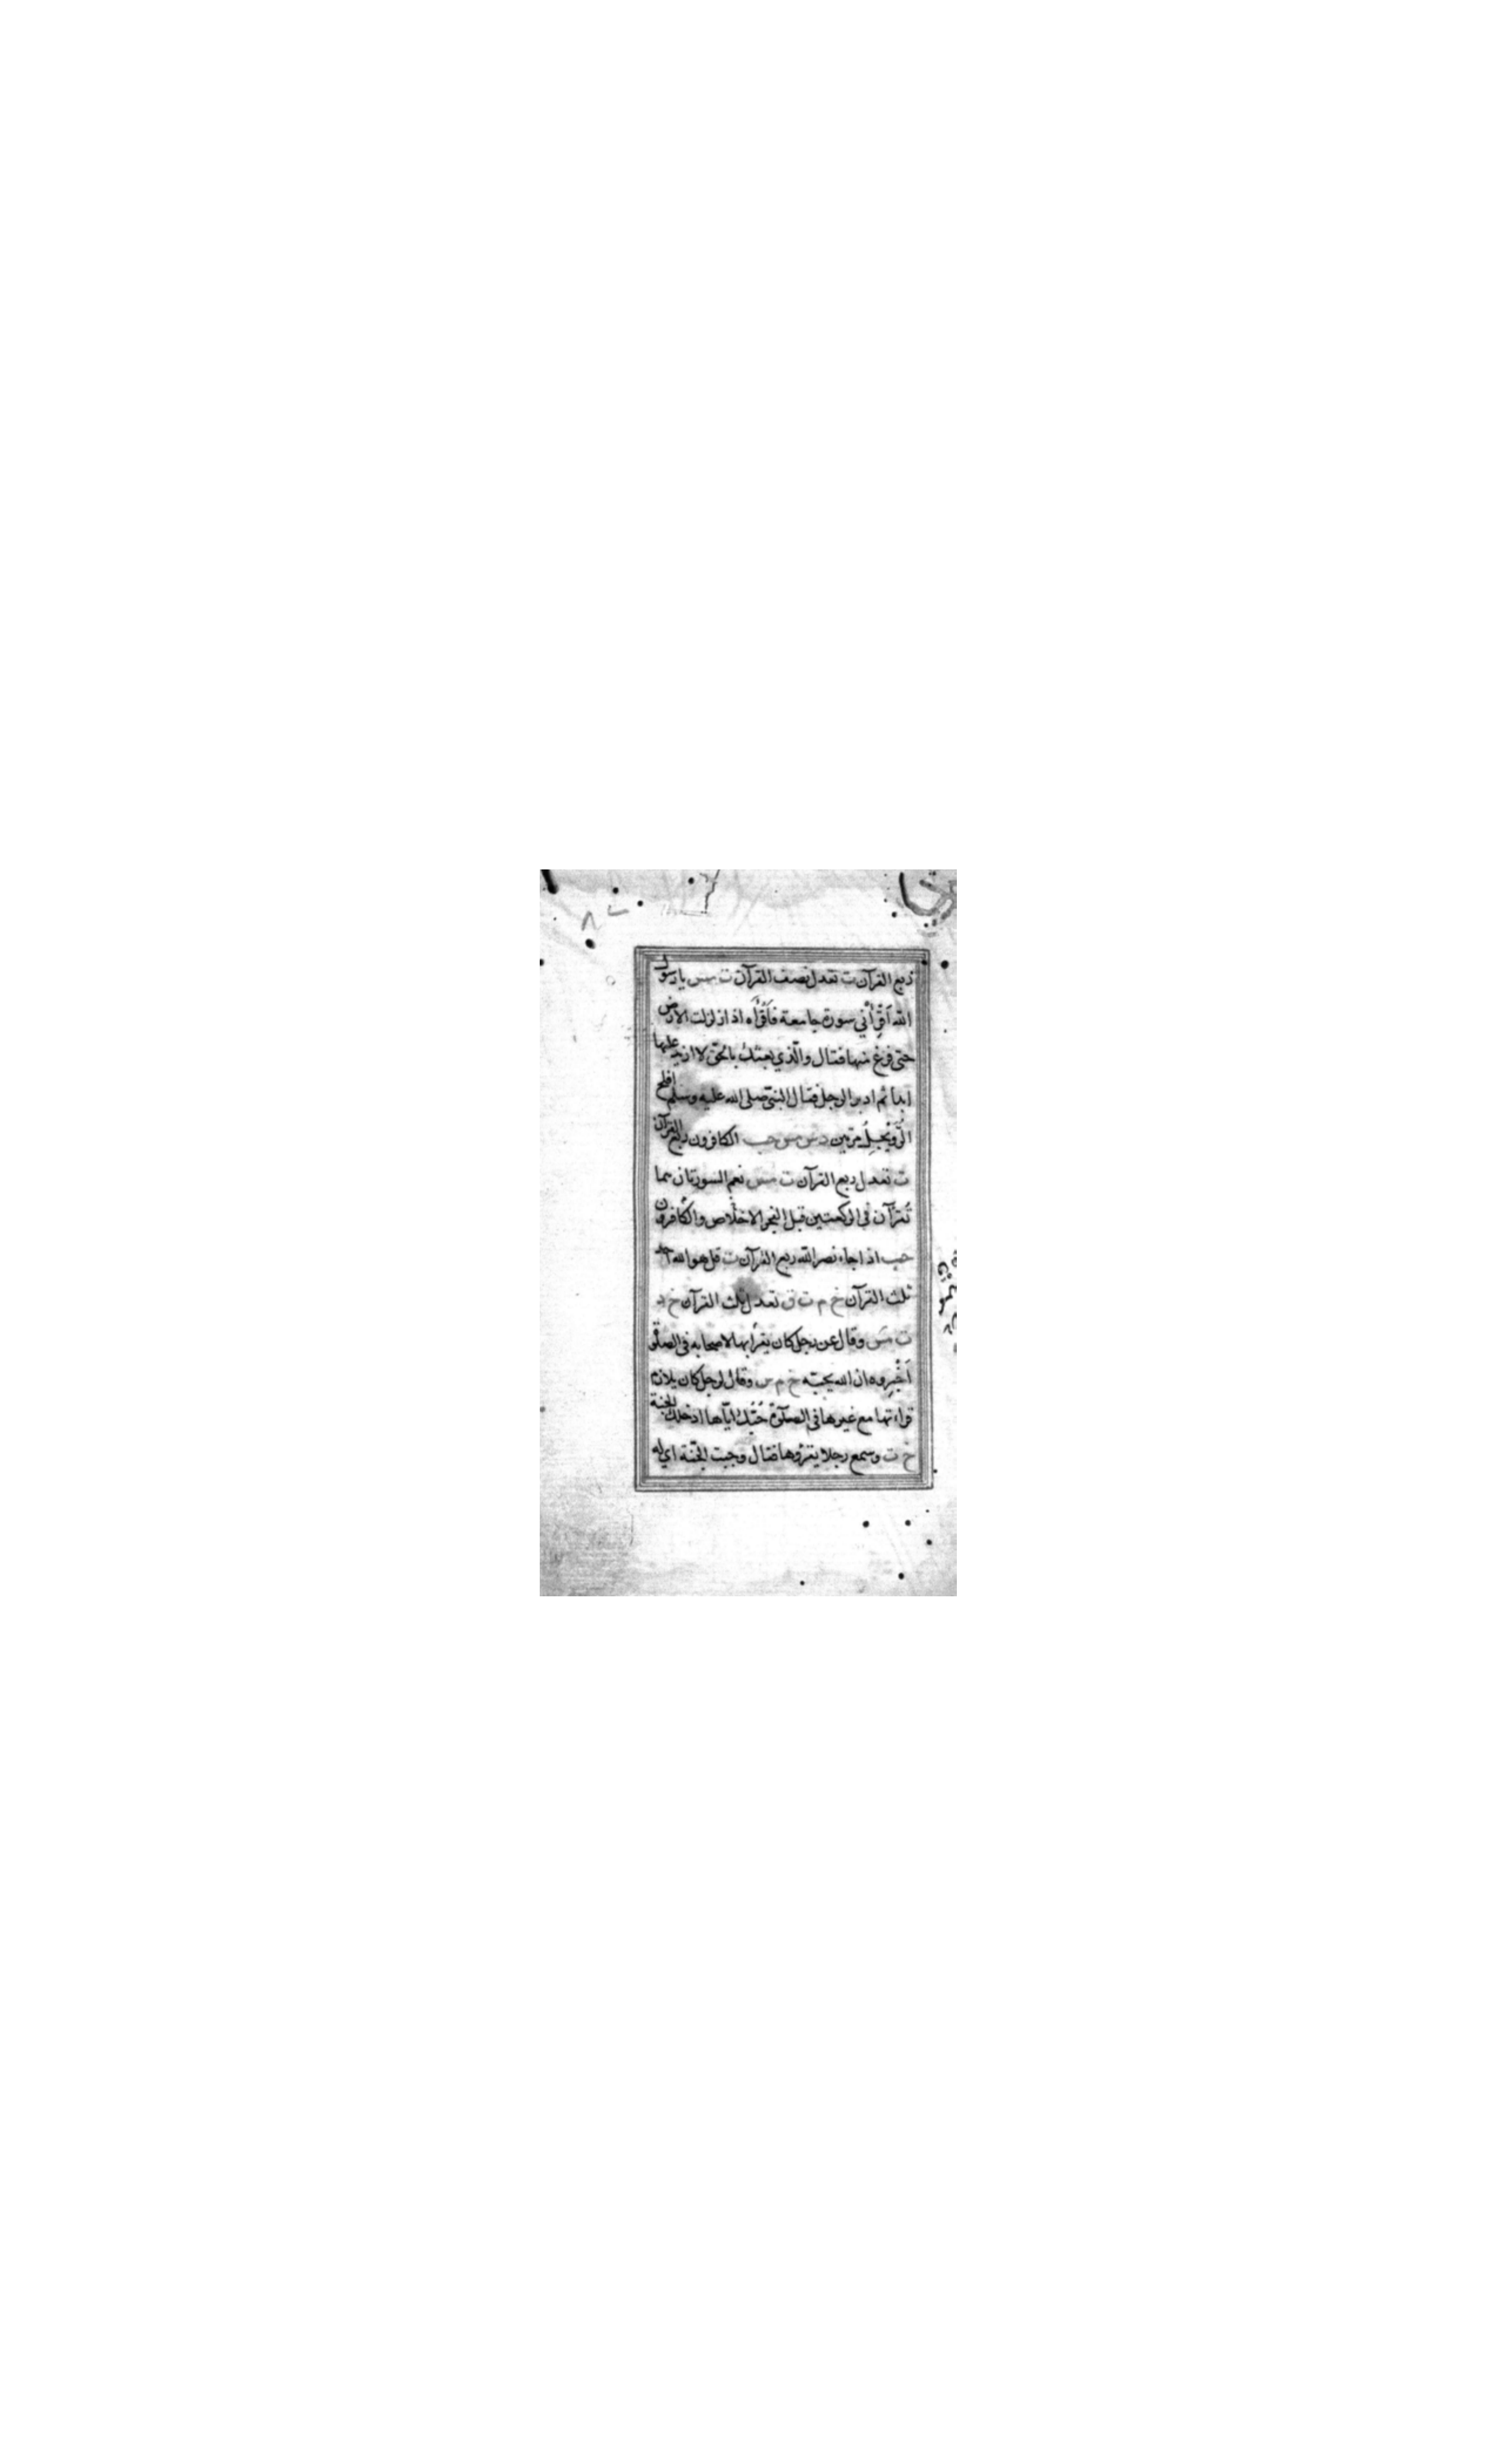 ربع القرآن ت تعدل نصف القرآن ت مس يا رسول
الله أَقْرِأْني سورة جامعة فأَقْرَأَه اذا زلزلت الارض
حتى فرغ منها فقال والّذي بعثك بالحقّ لا ازيد عليها
ابدا ثم ادبر الرجل فقال النبيّ صلى الله عليه وسلم افلح
الرُّوَيْجِلُ مرّتين د س مس حب الكافرون ربع القرآن
ت تعدل ربع القرآن ت مس نعم السورتان هما
تُقرآن في الركعتين قبل الفجر الاخلاص والكافرون
حب اذا جاء نصر الله ربع القرآن ت قل هو الله احد
ثلث القرآن خ م ت ق تعدل ثلث القرآن خ د
ت س وقال عن رجل كان يقرأ بها لاصحابه في الصلوة
أَخْبِروه ان الله يحبّه خ م س وقال لرجل كان يلازم
قراءتها مع غيرها في الصلوة حُبُّك ايّاها ادخلك الجنة
خ ت وسمع رجلا يقرؤها فقال وجبت الجنّة اي له